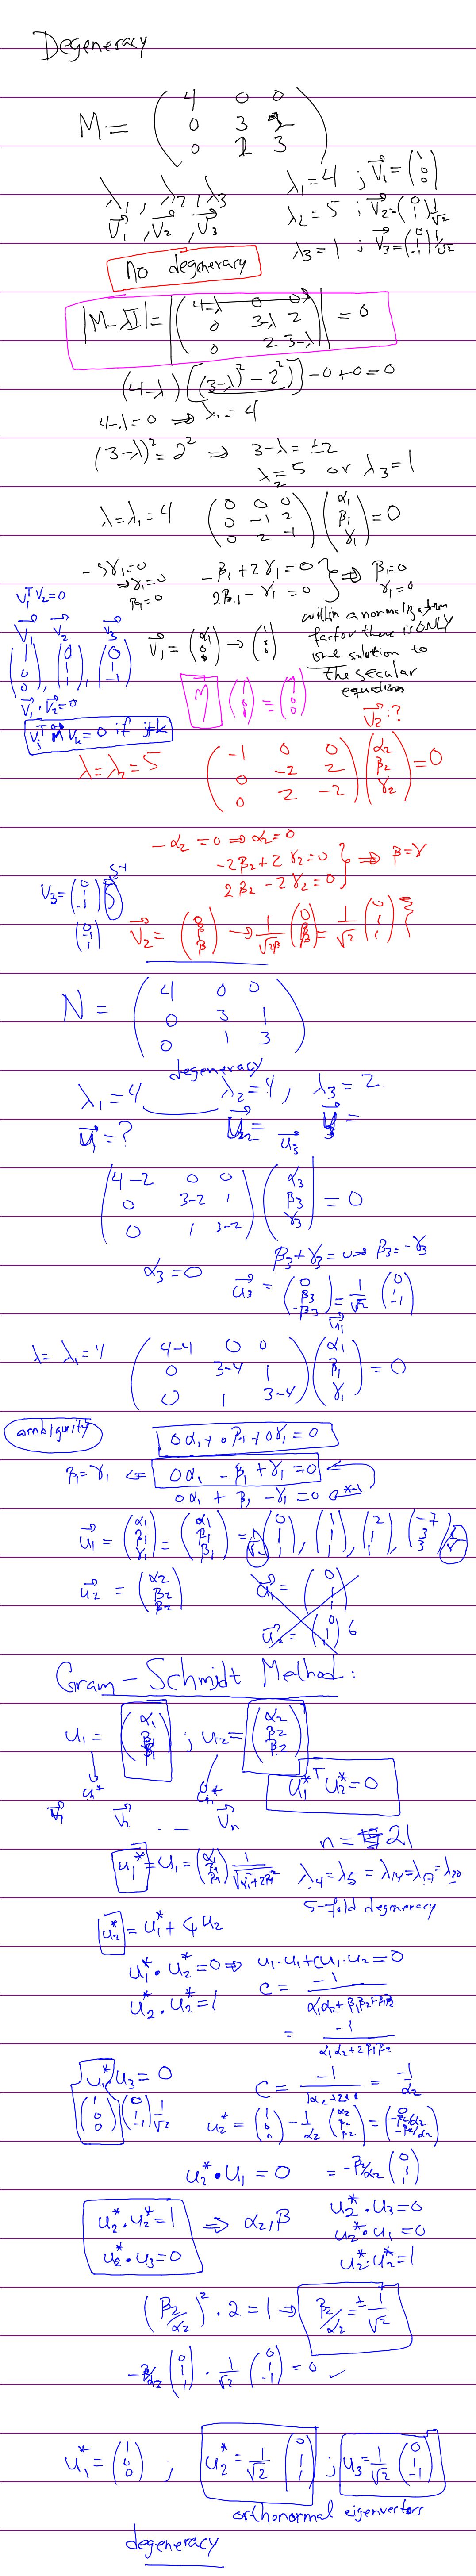 Degeneracy
M = ( 4 0 0 / 0 3 2 / 0 2 3 )
λ₁, λ₂, λ₃
λ₁ = 4 ; V⃗₁ = ( 1 / 0 / 0 )
V⃗₁, V⃗₂, V⃗₃
λ₂ = 5 ; V⃗₂ = ( 0 / 1 / 1 ) 1/√2
λ₃ = 1 ; V⃗₃ = ( 0 / 1 / -1 ) 1/√2
no degeneracy
|M-λI| = | ( 4-λ 0 0 / 0 3-λ 2 / 0 2 3-λ ) | = 0
(4-λ) [(3-λ)² - 2²] - 0 + 0 = 0
4-λ = 0 ⇒ λ₁ = 4
(3-λ)² = 2² ⇒ 3-λ = ±2
λ₂ = 5 or λ₃ = 1
λ = λ₁ = 4 ( 0 0 0 / 0 -1 2 / 0 2 -1 ) ( α₁ / β₁ / γ₁ ) = 0
-5γ₁ = 0 ⇒ γ₁ = 0
β₁ = 0
-β₁ + 2γ₁ = 0
2β₁ - γ₁ = 0 } ⇒ β₁ = 0
γ₁ = 0
V₁ᵀ V₂ = 0
V⃗₁ V⃗₂ V⃗₃
( 1 / 0 / 0 ), ( 0 / 1 / 1 ), ( 0 / 1 / -1 )
V⃗₁ · V⃗₂ = 0
V⃗₁ = ( α₁ / 0 / 0 ) → ( 1 / 0 / 0 )
within a normalization
factor there is ONLY
one solution to
the secular
equations
M ( 1 / 0 / 0 ) = ( 1 / 0 / 0 )
VⱼᵀM Vₖ = 0 if j≠k
V⃗₂ : ?
λ = λ₂ = 5 ( -1 0 0 / 0 -2 2 / 0 2 -2 ) ( α₂ / β₂ / γ₂ ) = 0
-α₂ = 0 ⇒ α₂ = 0
-2β₂ + 2γ₂ = 0
2β₂ - 2γ₂ = 0 } ⇒ β = γ
V₃ = ( 0 / 1 / -1 )
( 0 / -1 / 1 )
V⃗₂ = ( 0 / β / β ) → 1/√2β ( 0 / β / β ) = 1/√2 ( 0 / 1 / 1 )
N = ( 4 0 0 / 0 3 1 / 0 1 3 )
degeneracy
λ₁ = 4 λ₂ = 4, λ₃ = 2.
u⃗₁ = ? u⃗₂ = u⃗₃ =
u⃗₃
( 4-2 0 0 / 0 3-2 1 / 0 1 3-2 ) ( α₃ / β₃ / γ₃ ) = 0
α₃ = 0
β₃ + γ₃ = 0 ⇒ β₃ = -γ₃
u⃗₃ = ( 0 / β₃ / -β₃ ) = 1/√2 ( 0 / 1 / -1 )
u⃗₁
λ = λ₁ = 4 ( 4-4 0 0 / 0 3-4 1 / 0 1 3-4 ) ( α₁ / β₁ / γ₁ ) = 0
ambiguity
0α₁ + 0β₁ + 0γ₁ = 0
β₁ = γ₁ ⇐ 0α₁ - β₁ + γ₁ = 0
0α₁ + β₁ - γ₁ = 0 *-1
u⃗₁ = ( α₁ / β₁ / γ₁ ) = ( α₁ / β₁ / β₁ ) = 1/√2 ( 0 / 1 / 1 ), ( 1 / 1 / 1 ), ( 2 / 1 / 1 ), ( -7 / 3 / 3 ) 1/√
u⃗₂ = ( α₂ / β₂ / β₂ )
u⃗₁ = ( 0 / 1 / 1 )
u⃗₂ = ( 0 / 1 / 1 ) 6
Gram-Schmidt Method:
u₁ = ( α₁ / β₁ / β₁ ) ; u₂ = ( α₂ / β₂ / β₂ )
u₁* u₂*
u₁*ᵀ u₂* = 0
V⃗₁ V⃗₂ .. V⃗ₙ
n = 21
u₁* = u₁ = ( α₁ / β₁ / β₁ ) 1/√α₁²+2β₁²
λ₄ = λ₅ = λ₁₄ = λ₁₇ = λ₂₀
5-fold degeneracy
u₂* = u₁* + c u₂
u₁* · u₂* = 0 ⇒ u₁·u₁ + c u₁·u₂ = 0
u₂* · u₂* = 1
c = -1 / α₁α₂+β₁β₂+β₁β₂
= -1 / α₁α₂+2β₁β₂
u₁* u₃ = 0
c = -1 / 1α₂+2×0 = -1/α₂
( 1 / 0 / 0 ) ( 0 / 1 / -1 ) 1/√2
u₂* = ( 1 / 0 / 0 ) - 1/α₂ ( α₂ / β₂ / β₂ ) = ( 0 / -β₂/α₂ / -β₂/α₂ )
u₂* · u₁ = 0 = -β₂/α₂ ( 0 / 1 / 1 )
u₂* · u₂* = 1
u₂* · u₃ = 0
⇒ α₂, β
u₂* · u₃ = 0
u₂* · u₁ = 0
u₂* · u₂* = 1
(β₂/α₂)² · 2 = 1 ⇒ β₂/α₂ = ± 1/√2
-β₂/α₂ ( 0 / 1 / 1 ) · 1/√2 ( 0 / 1 / -1 ) = 0 ✓
u₁* = ( 1 / 0 / 0 ) ; u₂* = 1/√2 ( 0 / 1 / 1 ) ; u₃ = 1/√2 ( 0 / 1 / -1 )
orthonormal eigenvectors
degeneracy